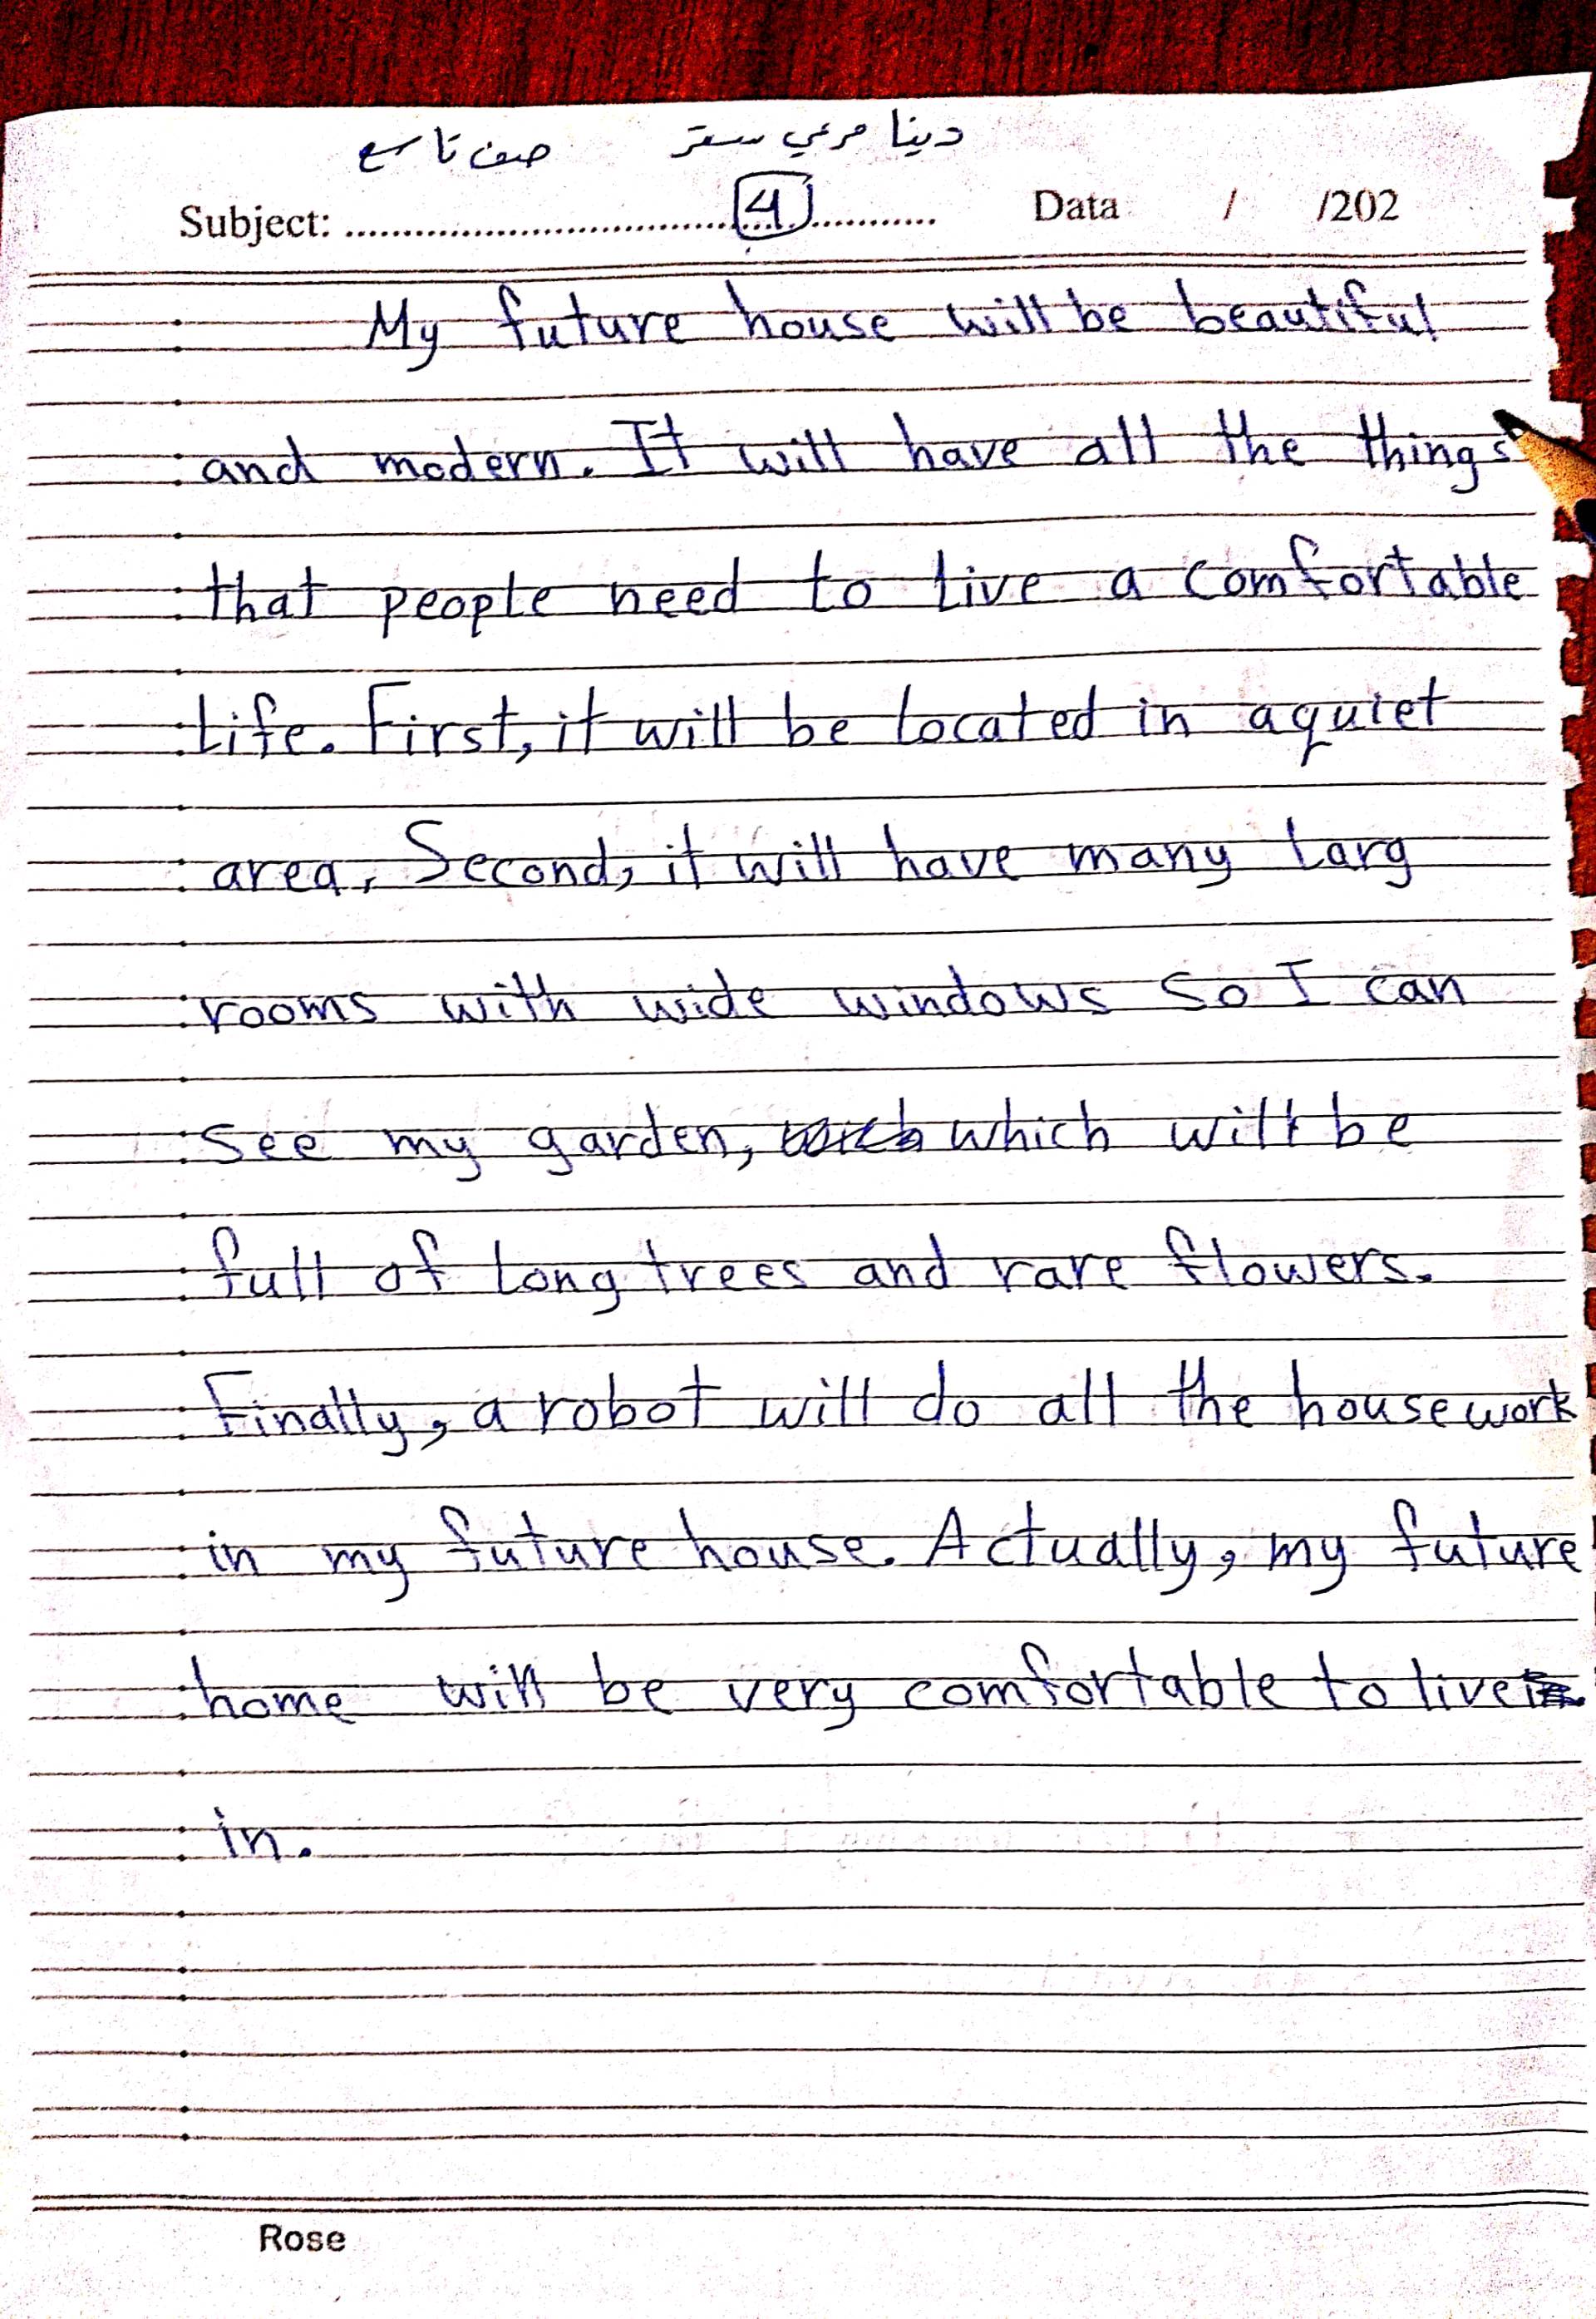 دينا مرعي سعتر صف تاسع
Subject: ........................ 4 ............ Data / /202
My future house will be beautiful
and modern. It will have all the things
that people need to live a comfortable
life. First, it will be located in a quiet
area. Second, it will have many larg
rooms with wide windows so I can
see my garden, which will be
full of long trees and rare flowers.
Finally, a robot will do all the housework
in my future house. Actually, my future
home will be very comfortable to live
in.
Rose